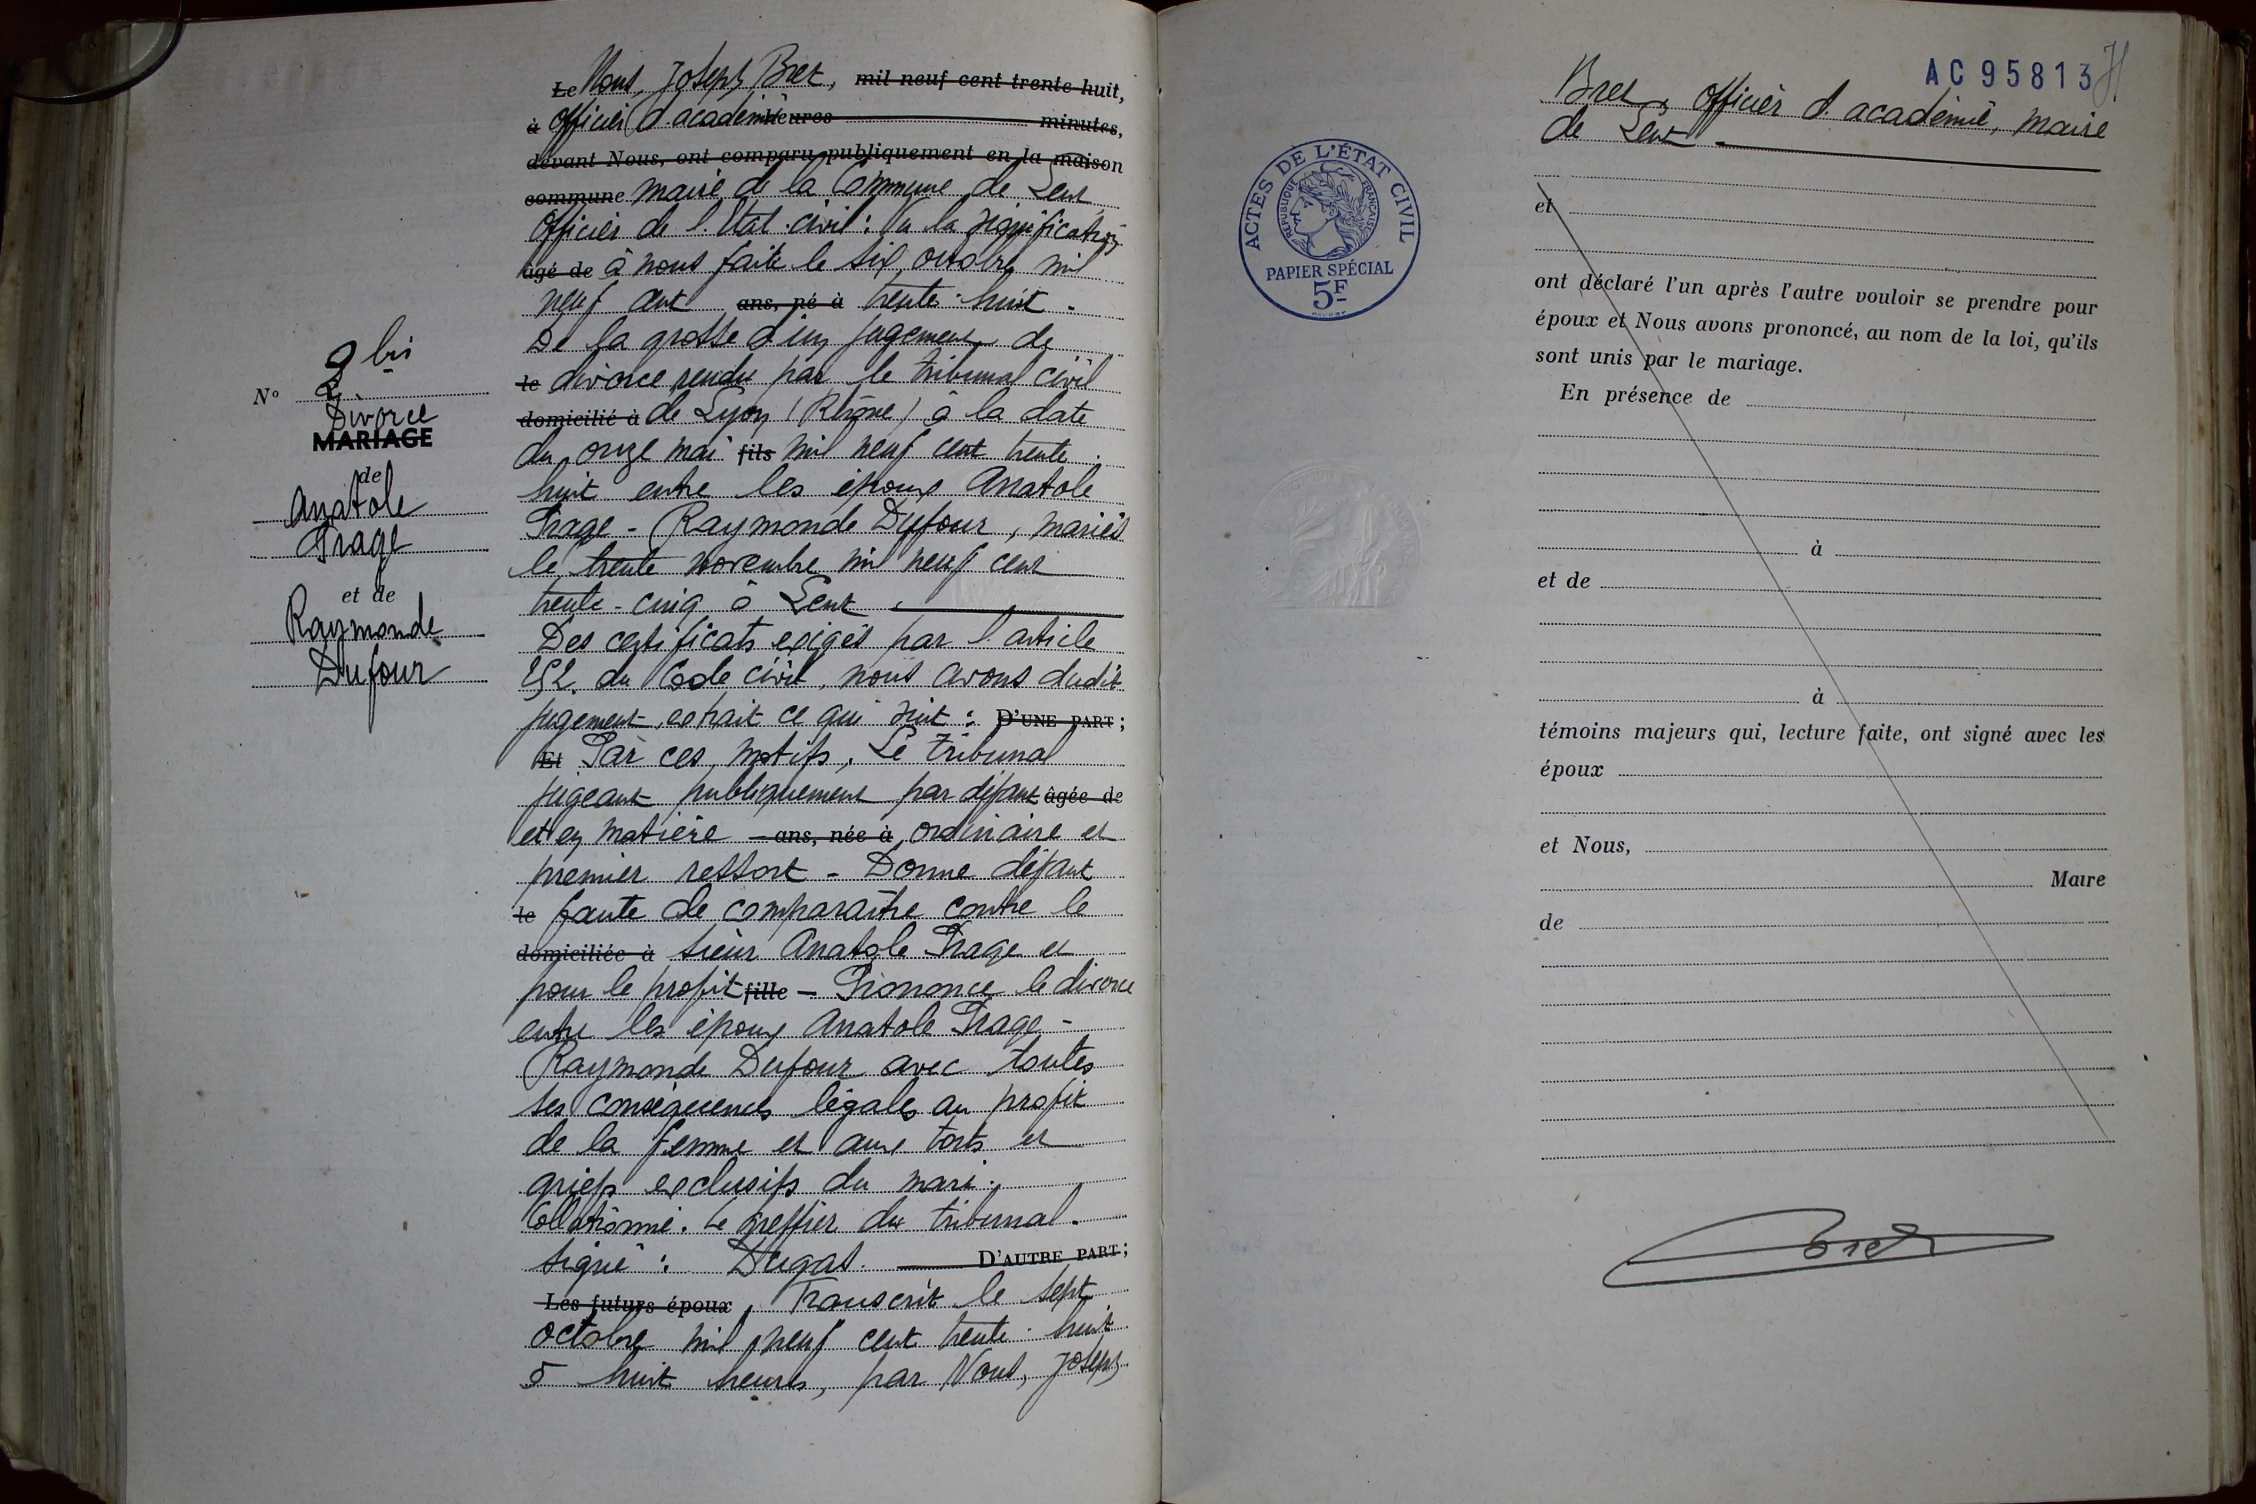 Le Nous, Joseph Bret, mil neuf cent trente-huit,
à officier d'académie heures minutes,
devant Nous, ont comparu publiquement en la maison
commune maire de la Commune de Lent
officier de l'Etat-civil : Vu la signification
âgé de à nous faite le six octobre mil
neuf cent ans, né à trente-huit.
De la grosse d'un jugement de
le divorce rendu par le tribunal civil
domicilié à de Lyon (Rhône) à la date
du onze mai fils mil neuf cent trente
huit entre les époux Anatole
Prage - Raymonde Dufour, mariés
le trente novembre mil neuf cent
trente-cinq à Lent.
Des certificats exigés par l'article
252 du Code civil, nous avons dudit
jugement extrait ce qui suit : D'UNE PART ;
Et Par ces motifs, Le tribunal
jugeant publiquement par défaut âgée de
et en matière ans, née à ordinaire et
premier ressort - Donne défaut
le faute de comparaître contre le
domiciliée à sieur Anatole Prage et
pour le profit fille - Prononce le divorce
entre les époux Anatole Prage -
Raymonde Dufour avec toutes
ses conséquences légales au profit
de la femme et aux torts et
griefs exclusifs du mari.
Collationné. Le greffier du tribunal.
signé : Dugas. D'AUTRE PART ;
Les futurs époux Transcrit le sept
octobre mil neuf cent trente-huit
à huit heures, par Nous, Joseph
N° 2 bis
Divorce
MARIAGE
de
Anatole
Prage
et de
Raymonde
Dufour
AC 95813
Bret, officier d'académie, maire
de Lent
ACTES DE L'ÉTAT CIVIL
RÉPUBLIQUE FRANÇAISE
PAPIER SPÉCIAL
5F
et
ont déclaré l'un après l'autre vouloir se prendre pour
époux et Nous avons prononcé, au nom de la loi, qu'ils
sont unis par le mariage.
En présence de
à
et de
à
témoins majeurs qui, lecture faite, ont signé avec les
époux
et Nous,
Maire
de
Bret